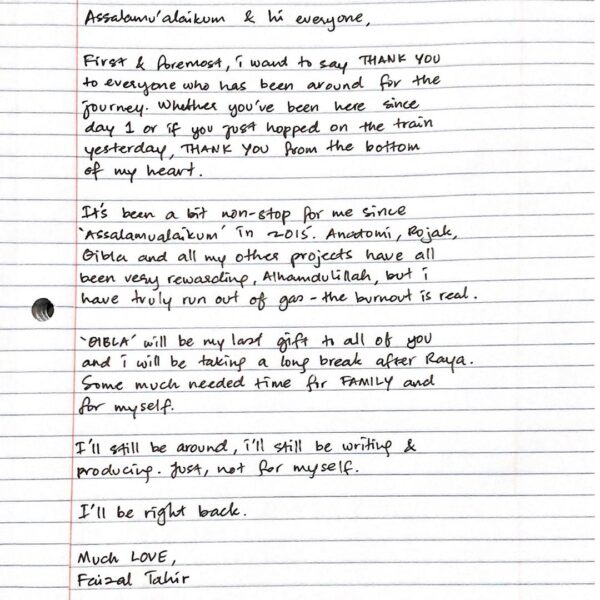 Assalamu'alaikum & hi everyone,
First & foremost, i want to say THANK YOU
to everyone who has been around for the
journey. Whether you've been here since
day 1 or if you just hopped on the train
yesterday, THANK YOU from the bottom
of my heart.
It's been a bit non-stop for me since
'Assalamualaikum' in 2015. Anatomi, Rojak,
Qibla and all my other projects have all
been very rewarding, Alhamdulillah, but i
have truly run out of gas - the burnout is real.
'QIBLA' will be my last gift to all of you
and i will be taking a long break after Raya.
Some much needed time for FAMILY and
for myself.
I'll still be around, i'll still be writing &
producing. Just, not for myself.
I'll be right back.
Much LOVE,
Faizal Tahir